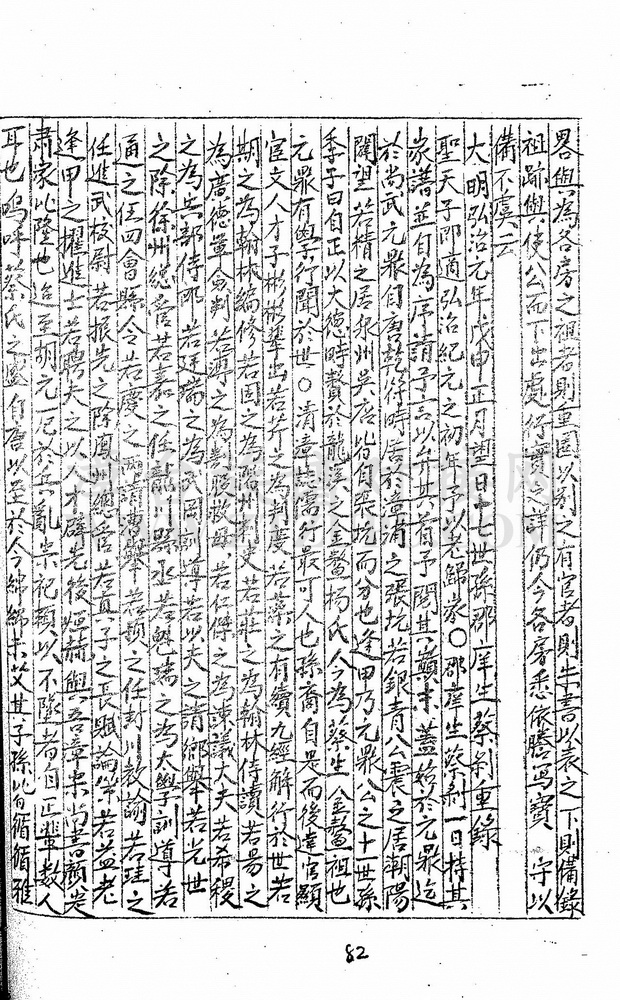 畧與為各房之祖者則重圈以別之有官者則朱書以表之下則備錄
祖跡與使公而下出處行實之詳仍令各房悉依謄寫寶 守以
備不虞云
大明弘治元年戊申正月望日十七世孫郡庠生蔡 重錄
聖天子即 弘治紀元之初年予以老歸家○郡庠生蔡 一日持其
家譜並自為序請予言以弁其首予閱其巔末蓋始於元鼎迄
於尚武元鼎自唐乾符時居於章浦之張坑若銀青公震之居潮陽
關望若精之居泉州吳店皆自張坑而分也逢甲乃元鼎公之十一世孫
季子曰自正以大德時贅於龍溪之金鰲楊氏今為蔡生金鰲祖也
元鼎有學行聞於世○清漳誌儒行最可人也孫裔自是而後達官顯
宦文人才子彬彬輩出若芹之為判度若蘂之有續九經解行於世若
期之為翰林編修若固之為 州刺史若莊之為翰林侍讀若易之
為廣德軍僉判若溥之為 教 若仁傑之為諫議大夫若希稷
之為兵部侍郎若廷瑞之為武岡訓導若以夫之請鄉舉若光世
之除徐州總管若嘉之任龍川縣丞若魁瑞之為太學訓導若
通之任四會縣令若慶之 請漕舉若穎之任封川教諭若珪之
任進武校尉若振先之除鳳州總管若真子之長賦論策若益老
逢甲之擢進士若聘夫之以人才辟先後烜赫與吾章宋尚書顏
肅家比隆也迨至胡元一厄於兵亂宗祀賴以不墜者自正輩數人
耳也嗚呼蔡氏之盛自唐以至於今綿綿未艾其子孫皆循循雅
82